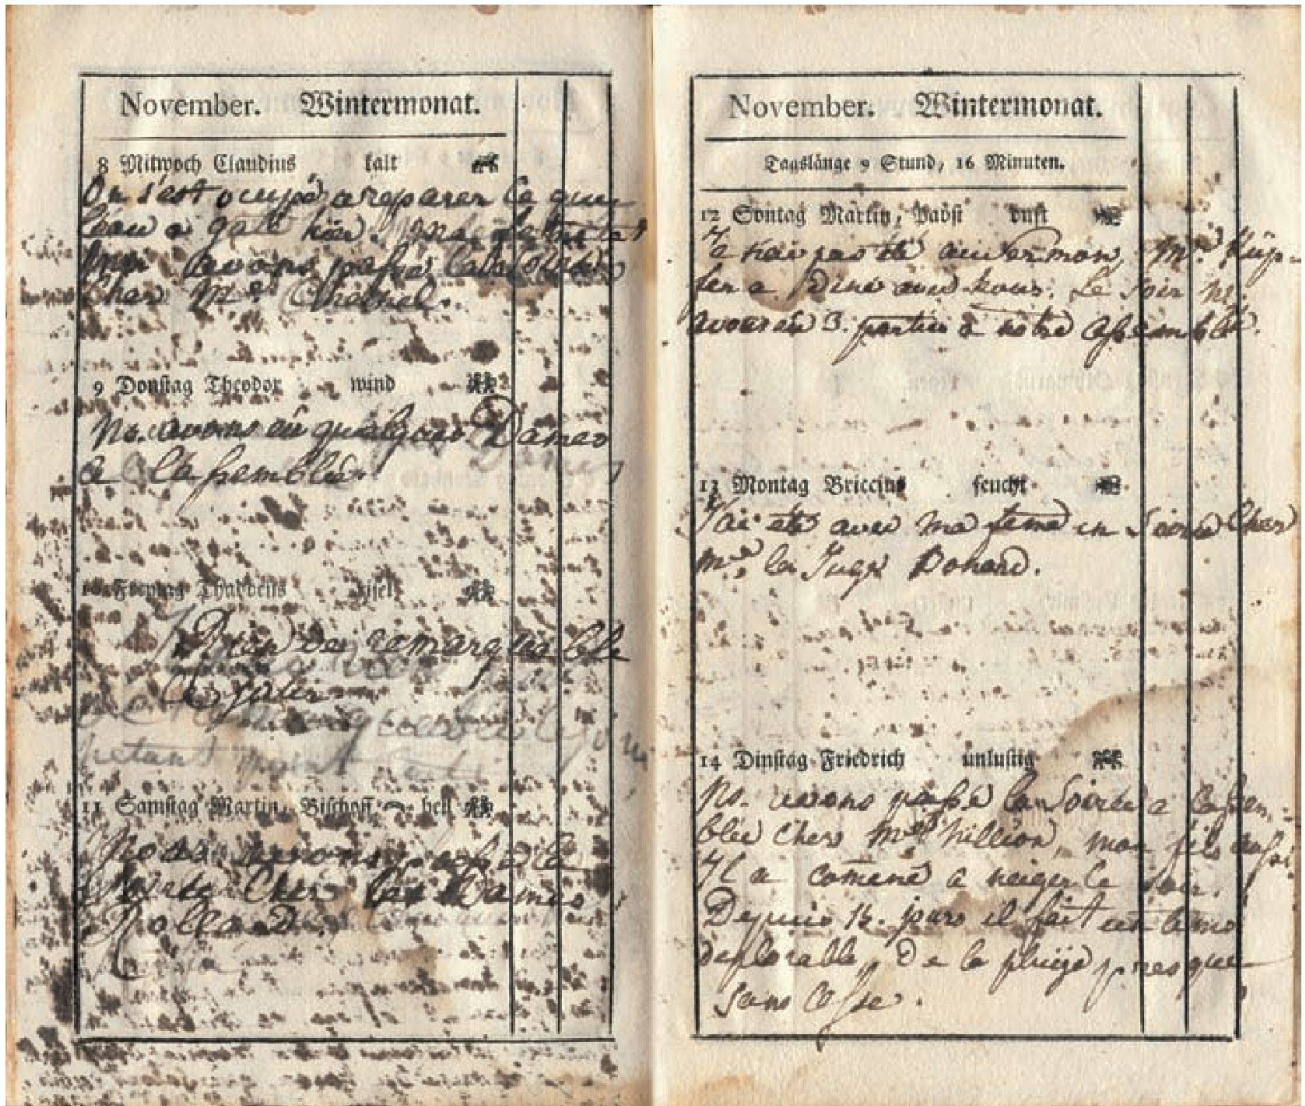 November. Wintermonat.
8 Mitwoch Claudius kalt
On s'est ocupé a reparer ce que
l'eau a gaté hier.
avons passé la soirée
Cher Mr
9 Donstag Theodor wind
Ns. avons eû quelques Dames
a l'assemblée.
10 Freytag Thaddeus
Rien de remarquable
11 Samstag Martin, Bischoff hell
Nous avons passé la
soirée Cher les Dames
Rolland.
November. Wintermonat.
Tagslänge 9 Stund, 16 Minuten.
12 Sontag Martin, Pabst duft
Je n'ai pas été au Sermon, Mr. Küp-
fer a Diné avec nous. Le soir ns.
avons eû 3. parties a notre assemblée.
13 Montag Briccius feucht
J'ai été avec ma feme en Soirée Cher
Me. la Juge
14 Dinstag Friedrich unlustig
Ns. avons passé la Soirée a l'assem-
blée Cher Million, mon fils aussi
Il a comencé a neiger le soir.
Depuis 15. jours il fait un tems
deplorable, de la pluije presque
sans cesse.